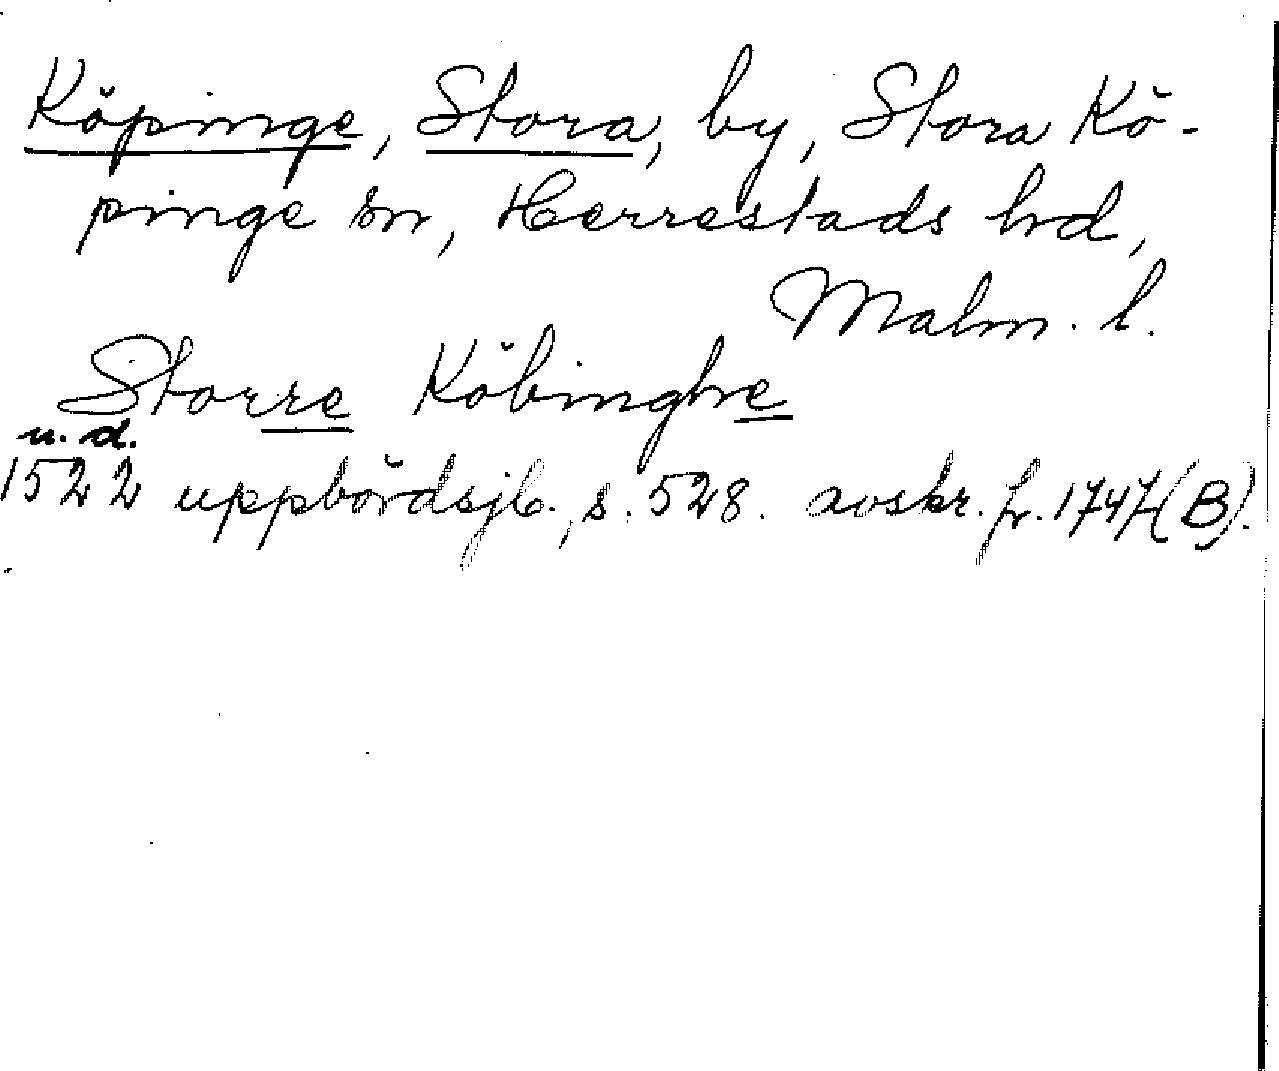 Köpinge, Stora, by, Stora Kö-
pinge sn, Herrestads hd,
Malm. l.
Storre Köbinghe
u. d.
1522 uppbördsjb., s. 528. avskr. fr. 1747 (B).